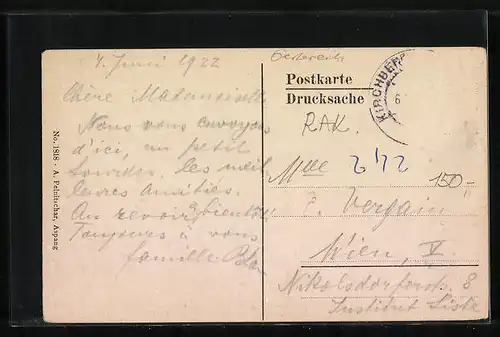 7. Juni 1922
Chère Mademoiselle
Nous vous envoyons
d'ici, un petit
les meil
leures amitiés.
Au revoir, à bientôt
Toujours à vous
famille
No. 1818 - A. Felnitschar, Aspang
Oesterreich
Postkarte
Drucksache
KIRCHBERG
6
RAK.
2/22
150-
Mlle
Wien, V.
Nikolsdorferstr. 8
Institut